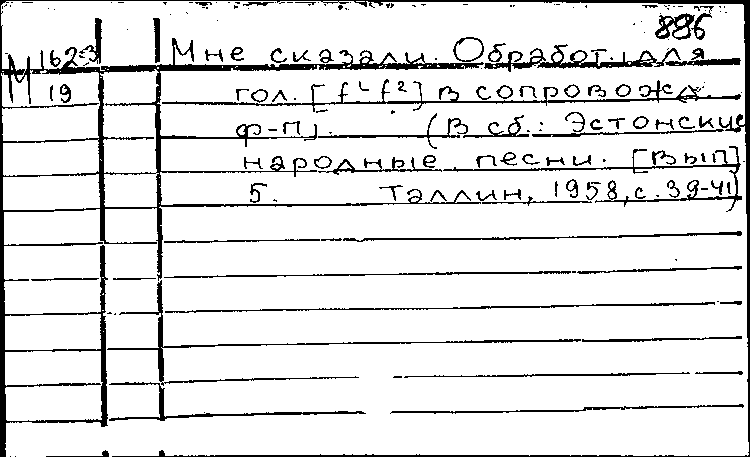 896
М 162-3
19
Мне сказали. Обработ. для
гол. [f¹-f²] в сопровожд.
ф-п. (В сб.: Эстонские
народные песни. [Вып]
5. Таллин, 1958, с. 39-41)